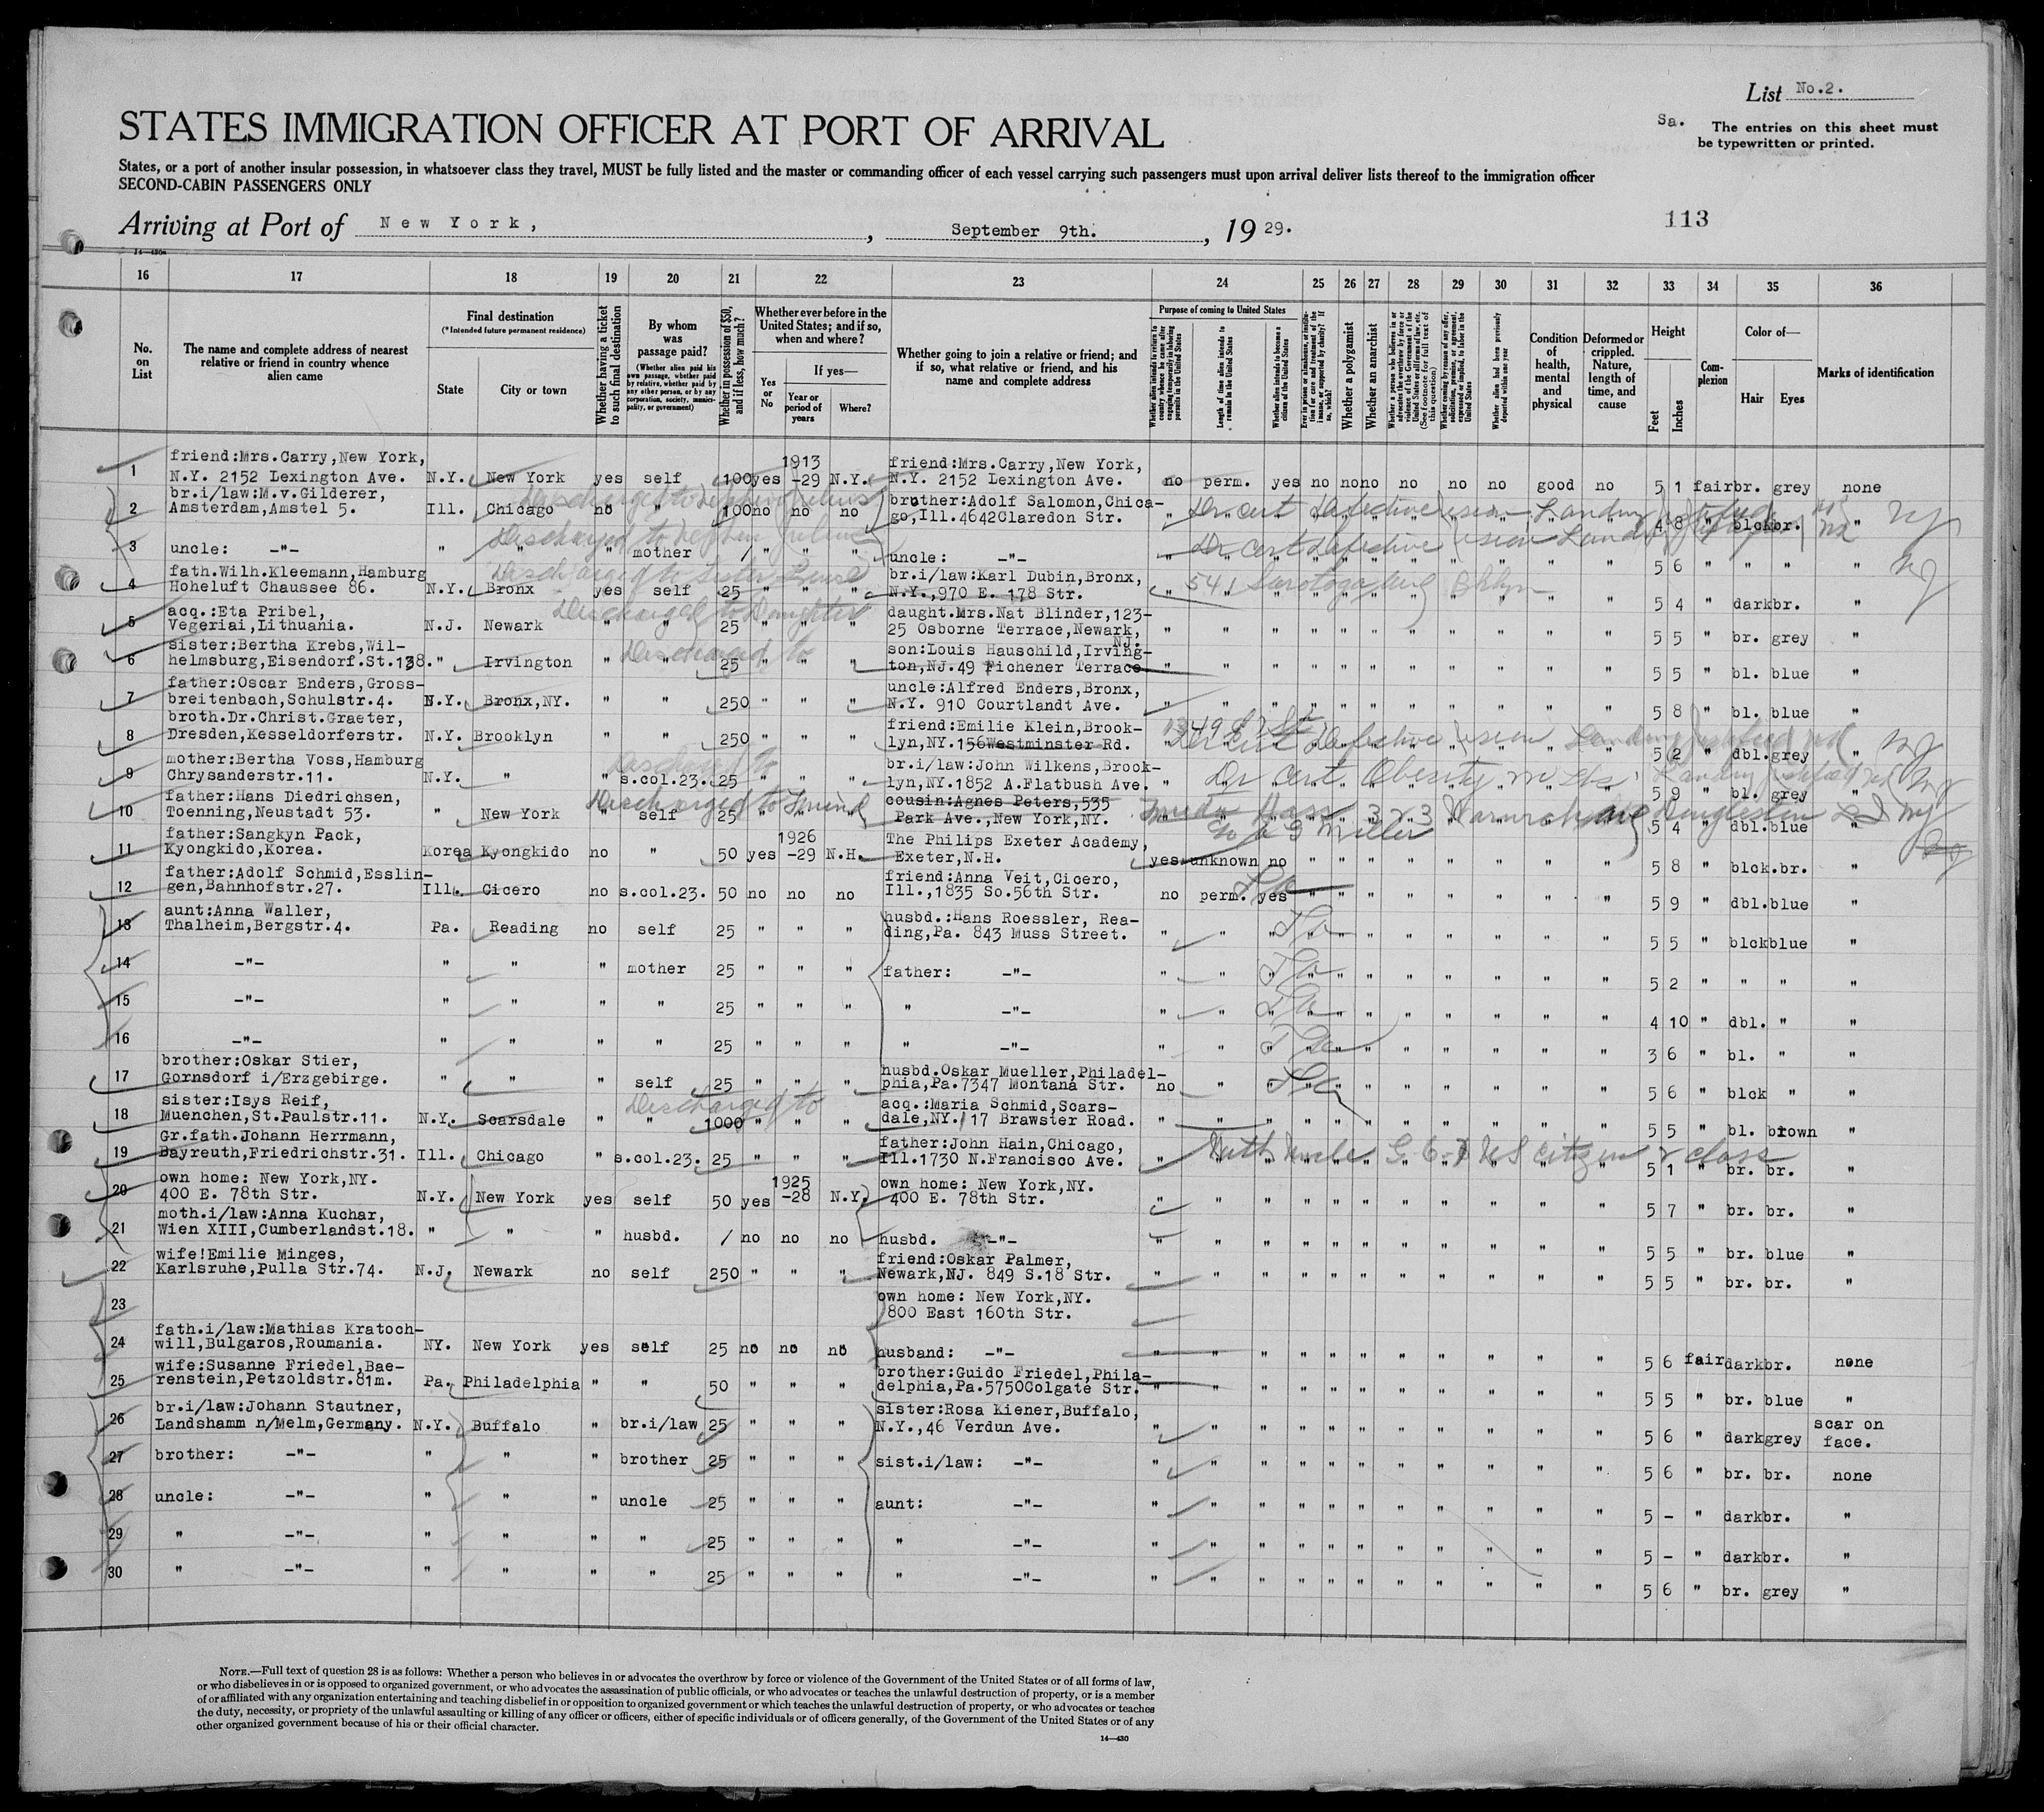 List No.2.
Sa. The entries on this sheet must
be typewritten or printed.
STATES IMMIGRATION OFFICER AT PORT OF ARRIVAL
States, or a port of another insular possession, in whatsoever class they travel, MUST be fully listed and the master or commanding officer of each vessel carrying such passengers must upon arrival deliver lists thereof to the immigration officer
SECOND-CABIN PASSENGERS ONLY
Arriving at Port of New York, , September 9th. , 19 29.
113
14—430a
16 17 18 19 20 21 22 23 24 25 26 27 28 29 30 31 32 33 34 35 36
No. on List
The name and complete address of nearest relative or friend in country whence alien came
Final destination
(*Intended future permanent residence)
State
City or town
Whether having a ticket to such final destination
By whom was passage paid?
(Whether alien paid his own passage, whether paid by relative, whether paid by any other person, or by any corporation, society, municipality, or government)
Whether in possession of $50, and if less, how much?
Whether ever before in the United States; and if so, when and where?
Yes or No
If yes—
Year or period of years
Where?
Whether going to join a relative or friend; and if so, what relative or friend, and his name and complete address
Purpose of coming to United States
Whether alien intends to return to country whence he came after engaging temporarily in laboring pursuits in the United States
Length of time alien intends to remain in the United States
Whether alien intends to become a citizen of the United States
Whether a polygamist
Whether an anarchist
Condition of health, mental and physical
Deformed or crippled. Nature, length of time, and cause
Height
Feet
Inches
Complexion
Color of—
Hair
Eyes
Marks of identification
1 friend:Mrs.Carry,New York, 1913 friend:Mrs.Carry,New York,
N.Y. 2152 Lexington Ave. N.Y. New York yes self 100 yes -29 N.Y. N.Y. 2152 Lexington Ave. no perm. yes no no no no no no good no 5 1 fair br. grey none
2 br.i/law:M.v.Gilderer, Discharged to brother:Adolf Salomon,Chica-
Amsterdam,Amstel 5. Ill. Chicago no " 100 no no no go,Ill.4642Claredon Str. " Dr cert Defective vision Landing 4 8 " blck br. "
3 Discharged to Nephew Julius
uncle: -"- " " " mother / " " " uncle: -"- " Dr cert Defective vision 5 6 " " " "
4 fath.Wilh.Kleemann,Hamburg Discharged to Sister br.i/law:Karl Dubin,Bronx, 541 Saratoga Ave Bklyn
Hoheluft Chaussee 86. N.Y. Bronx yes self 25 " " " N.Y.,970 E. 178 Str. 5 4 " dark br. "
5 acq.:Eta Pribel, Discharged to Daughter daught.Mrs.Nat Blinder,123-
Vegeriai,Lithuania. N.J. Newark " " 25 " " " 25 Osborne Terrace,Newark, NJ. 5 5 " br. grey "
6 sister:Bertha Krebs,Wil- Discharged to son:Louis Hauschild,Irving-
helmsburg,Eisendorf.St.138. " Irvington " " 25 " " " ton,NJ.49 Fichener Terrace 5 5 " bl. blue "
7 father:Oscar Enders,Gross- uncle:Alfred Enders,Bronx,
breitenbach,Schulstr.4. N.Y. Bronx,NY. " " 250 " " " N.Y. 910 Courtlandt Ave. 5 8 " bl. blue "
8 broth.Dr.Christ.Graeter, friend:Emilie Klein,Brook-
Dresden,Kesseldorferstr. N.Y. Brooklyn " " 250 " " " lyn,NY.156Westminster Rd. Dr Cert Defective vision Landing 5 2 " dbl. grey "
9 mother:Bertha Voss,Hamburg Discharged to br.i/law:John Wilkens,Brook-
Chrysanderstr.11. N.Y. " " s.col.23. 25 " " " lyn,NY.1852 A.Flatbush Ave. Dr cert. Obesity 5 9 " bl. grey "
10 father:Hans Diedrichsen, Discharged to Friend cousin:Agnes Peters,535
Toenning,Neustadt 53. " New York " self 25 " " " Park Ave.,New York,NY. 5 4 " dbl. blue "
11 father:Sangkyn Pack, 1926 The Philips Exeter Academy,
Kyongkido,Korea. Korea Kyongkido no " 50 yes -29 N.H. Exeter,N.H. yes unknown no " 5 8 " blck. br. "
12 father:Adolf Schmid,Esslin- friend:Anna Veit,Cicero,
gen,Bahnhofstr.27. Ill. Cicero no s.col.23. 50 no no no Ill.,1835 So.56th Str. no perm. yes " 5 9 " dbl. blue "
13 aunt:Anna Waller, husbd.:Hans Roessler, Rea-
Thalheim,Bergstr.4. Pa. Reading no self 25 " " " ding,Pa. 843 Muss Street. " " 5 5 " blck blue "
14 -"- " " " mother 25 " " " father: -"- " " 5 2 " " " "
15 -"- " " " " 25 " " " " -"- " " 4 10 " dbl. " "
16 -"- " " " " 25 " " " " -"- " " 3 6 " bl. " "
17 brother:Oskar Stier, husbd.Oskar Mueller,Philadel-
Gornsdorf i/Erzgebirge. " " " self 25 " " " phia,Pa.7347 Montana Str. no " 5 6 " blck " "
18 sister:Isys Reif, Discharged to acq.:Maria Schmid,Scars-
Muenchen,St.Paulstr.11. N.Y. Scarsdale " " 1000 " " " dale,NY. 17 Brawster Road. " " 5 5 " bl. brown "
19 Gr.fath.Johann Herrmann, father:John Hain,Chicago,
Bayreuth,Friedrichstr.31. Ill. Chicago " s.col.23. 25 " " " Ill.1730 N.Francisco Ave. " With Uncle US citizen 2 class 5 1 " br. br. "
20 own home: New York,NY. 1925 own home: New York,NY.
400 E. 78th Str. N.Y. New York yes self 50 yes -28 N.Y. 400 E. 78th Str. " " 5 7 " br. br. "
21 moth.i/law:Anna Kuchar,
Wien XIII,Cumberlandst.18. " " " husbd. / no no no husbd. -"- " " 5 5 " br. blue "
22 wife!Emilie Minges, friend:Oskar Palmer,
Karlsruhe,Pulla Str.74. N.J. Newark no self 250 " " " Newark,NJ. 849 S.18 Str. " " 5 5 " br. br. "
23 own home: New York,NY.
800 East 160th Str.
24 fath.i/law:Mathias Kratoch-
will,Bulgaros,Roumania. NY. New York yes self 25 no no no husband: -"- " " 5 6 fair dark br. none
25 wife:Susanne Friedel,Bae- brother:Guido Friedel,Phila-
renstein,Petzoldstr.81m. Pa. Philadelphia " " 50 " " " delphia,Pa.5750Colgate Str. " " 5 5 " br. blue "
26 br.i/law:Johann Stautner, sister:Rosa Kiener,Buffalo, scar on
Landshamm n/Melm,Germany. N.Y. Buffalo " br.i/law 25 " " " N.Y.,46 Verdun Ave. " " 5 6 " dark grey face.
27 brother: -"- " " " brother 25 " " " sist.i/law: -"- " " 5 6 " br. br. none
28 uncle: -"- " " " uncle 25 " " " aunt: -"- " " 5 - " dark br. "
29 " -"- " " " " 25 " " " " -"- " " 5 - " dark br. "
30 " -"- " " " " 25 " " " " -"- " " 5 6 " br. grey "
NOTE.—Full text of question 28 is as follows: Whether a person who believes in or advocates the overthrow by force or violence of the Government of the United States or of all forms of law,
or who disbelieves in or is opposed to organized government, or who advocates the assassination of public officials, or who advocates or teaches the unlawful destruction of property, or is a member
of or affiliated with any organization entertaining and teaching disbelief in or opposition to organized government or which teaches the unlawful destruction of property, or who advocates or teaches
the duty, necessity, or propriety of the unlawful assaulting or killing of any officer or officers, either of specific individuals or of officers generally, of the Government of the United States or of any
other organized government because of his or their official character.
14—430